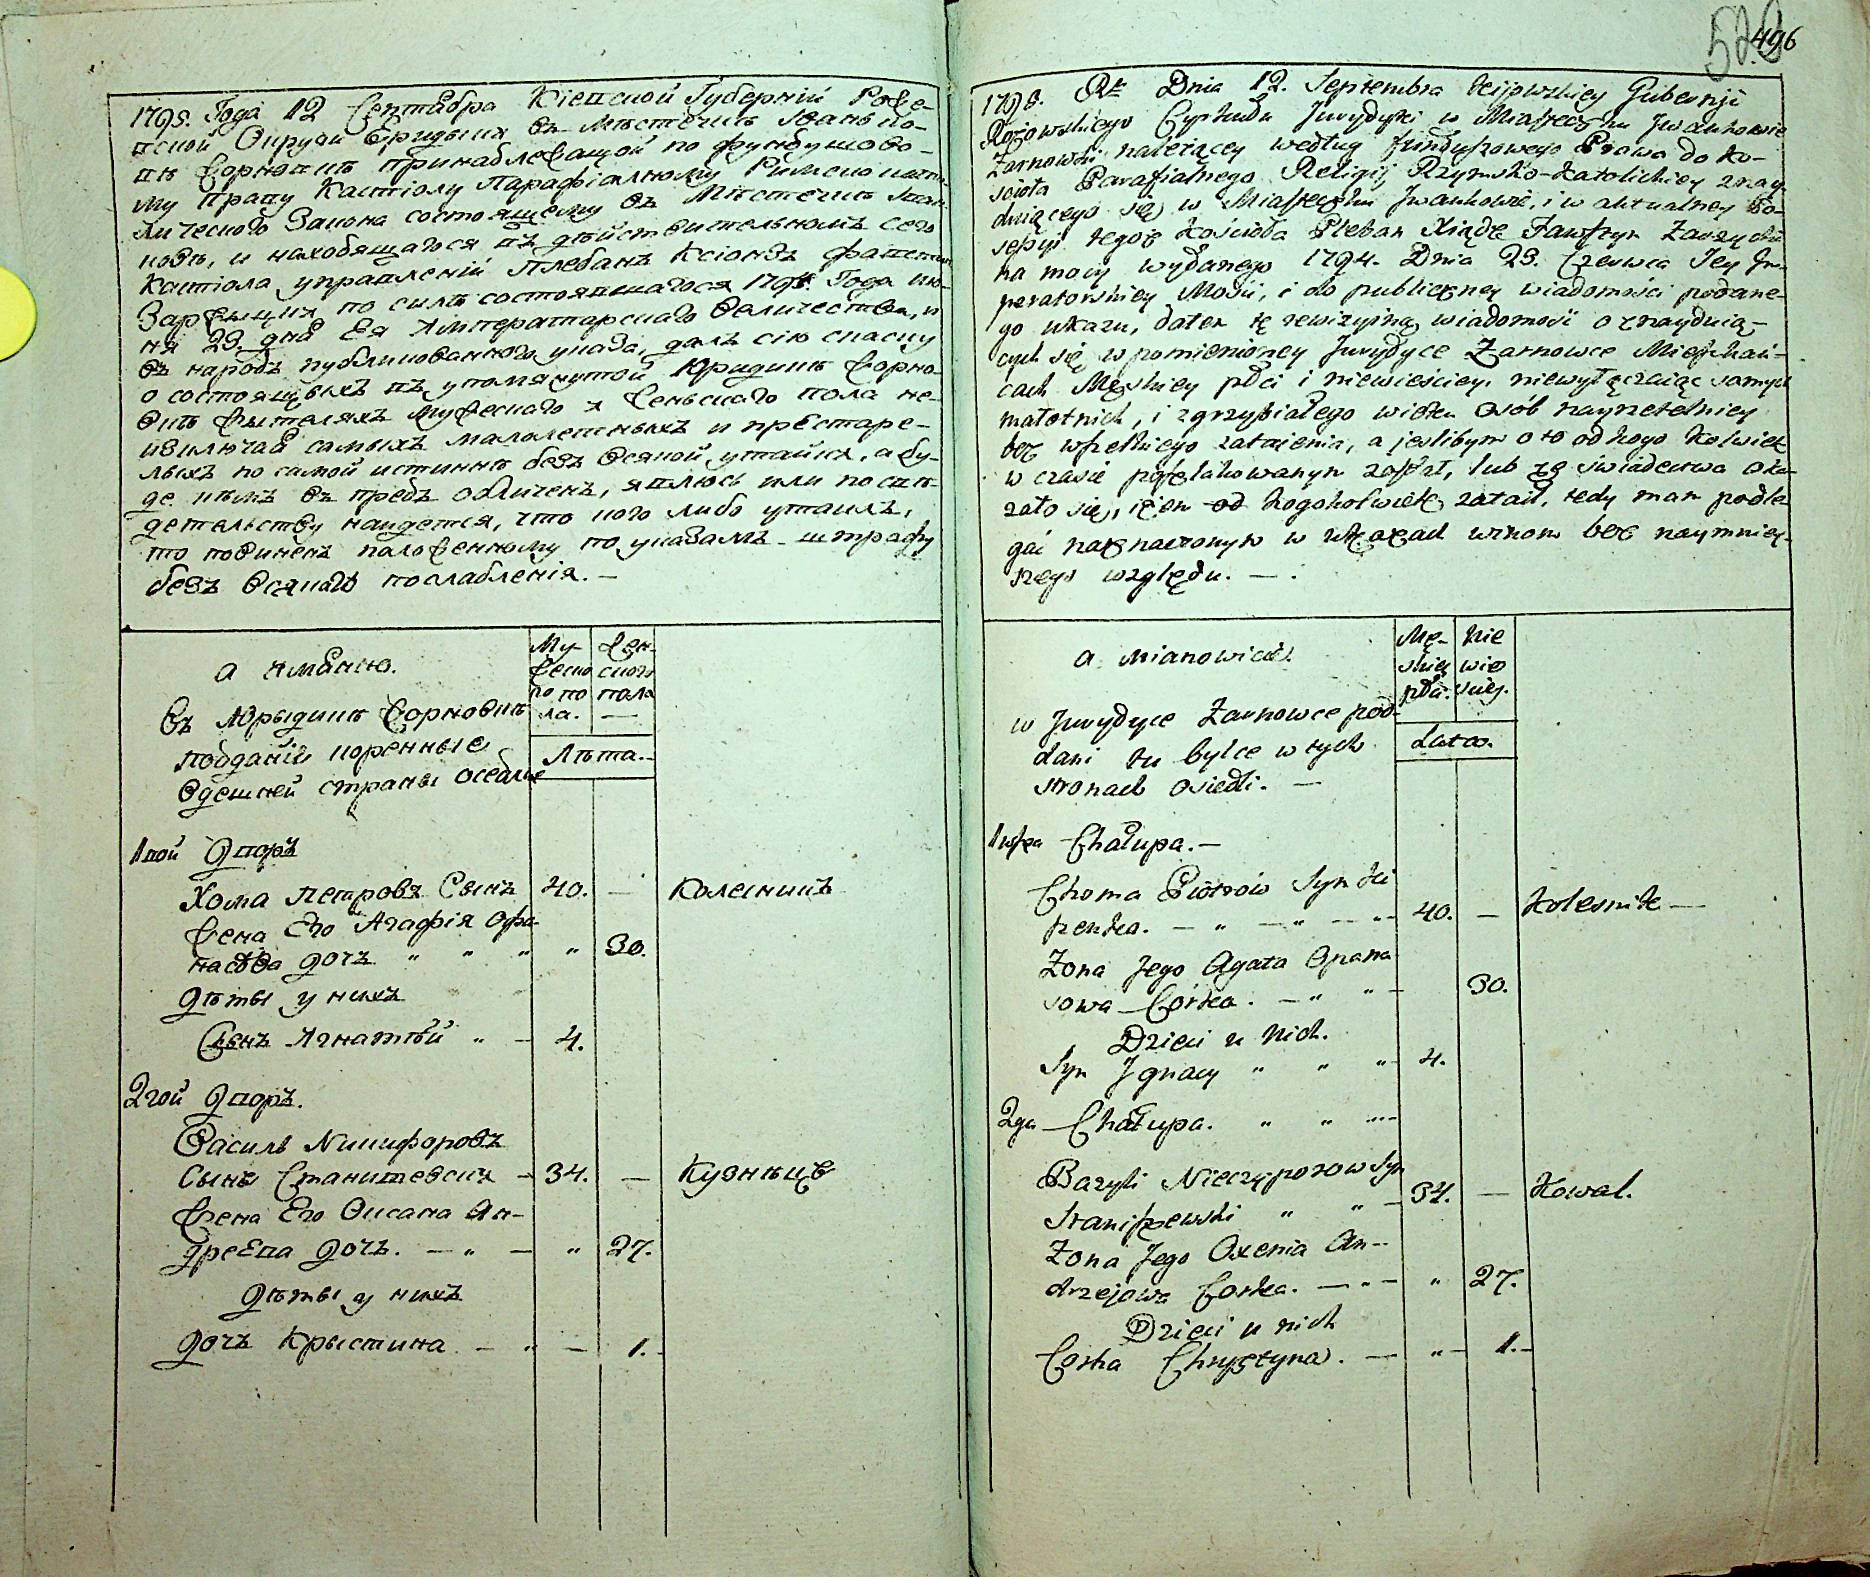 1795. Года 12 Сентября Кіевской Губерніи
въ Мѣстечкѣ
Парафіалному Римско
состоящему въ Мѣстечкѣ
и находящагося въ дѣйствительномъ сего
Костіола управленій Плебанъ Ксіондз
по силѣ состоявшагося 179 Года
ня 23 дня Ея Імператорскаго Величества,
въ народъ публикованного указа, далъ сію сказку
о состоящыхъ въ упомянутой Юридикѣ
жителяхъ мужескаго и женскаго пола не
изключая самыхъ малолетныхъ и престаре-
лыхъ по самой истиннѣ безъ всякой утайки, а бу-
де кѣмъ въ предъ обличенъ, явлюсь или по сви-
детельству найдется, что кого либо утаилъ,
то повиненъ положенному по указамъ штрафу
безъ всякаго послабленія. —
а имянно.
Му-
жеско
го по
ла.
Жен-
ского
пола
—
Въ Юрыдикѣ Жорновкѣ
подданій коренные
Здешней страны оседлые
Лѣта.
1вой Дворъ
Хома Петровъ Сынъ 40. — Колесникъ
Жена Его Агафія Афа-
насова дочъ " " " " 30.
Дѣты у нихъ
Сынъ Игнатій " — 4.
2гой Дворъ.
Василь Никифоровъ
Сынъ Станишевски — 34. — Кузнѣцъ
Жена Его Оксана Ан-
дреева дочъ. — " — " 27.
Дѣты у нихъ
дочъ Крыстина — " — 1.
520
496
1795. Rku Dnia 12. Septembra Kijowskiey Gubernji
Cyrkułu Jurydyki w Miasteczku Jwankowie
Żarnowki należącey według funduszowego Prawa do Ko-
scioła Parafialnego Religij Rzymsko-Katolickiey znay-
duiącego się w Miasteczku Jwankowie, i w aktualney Po-
sesyi tegoż Kościoła Pleban Xiądz
na mocy wydanego 1794. Dnia 23. Czerwca Jey Jm-
peratorskiey Mości, i do publiczney wiadomości podane-
go ukazu, dałem tę rewizyiną wiadomość o znayduią-
cych się w pomienioney Jurydyce Żarnowce Mieszkań-
cach Męskiey płci i niewieściey, niewyłączaiąc samych
małotnich, i zgrzybiałego wieku osób nayrzetelniey
bez wszelkiego zataienia, a jeślibym o to od kogo kolwiek
w czasie poszlakowanym został, lub ze świadectwa oka-
zało się, iżem od kogokolwiek zataił, tedy mam podle-
gać naznaczonym w ukazach winom bez naymniey-
szego względu. — .
a mianowicie.
Mę-
skiey
płci.
Nie
wie
sciey.
w Jurydyce Żarnowce pod-
dani tu bylce w tych
stronach osiedli. —
Lata.
1wsza Chałupa. —
Choma Piotrów Syn
— " — " — 40. — Kolesnik —
Żona Jego Agata Opana
sowa Córka. — " " — 30.
Dzieci u Nich.
Syn Jgnacy " " " 4.
2ga Chałupa. " "
Bazyli Nieczyporow Syn
Staniszewski " " — 34. — Kowal.
Żona Jego Oxenia An-
drzejowa Corka. — " — " 27.
Dzieci u nich
Corka Chrystyna. — " — 1. —